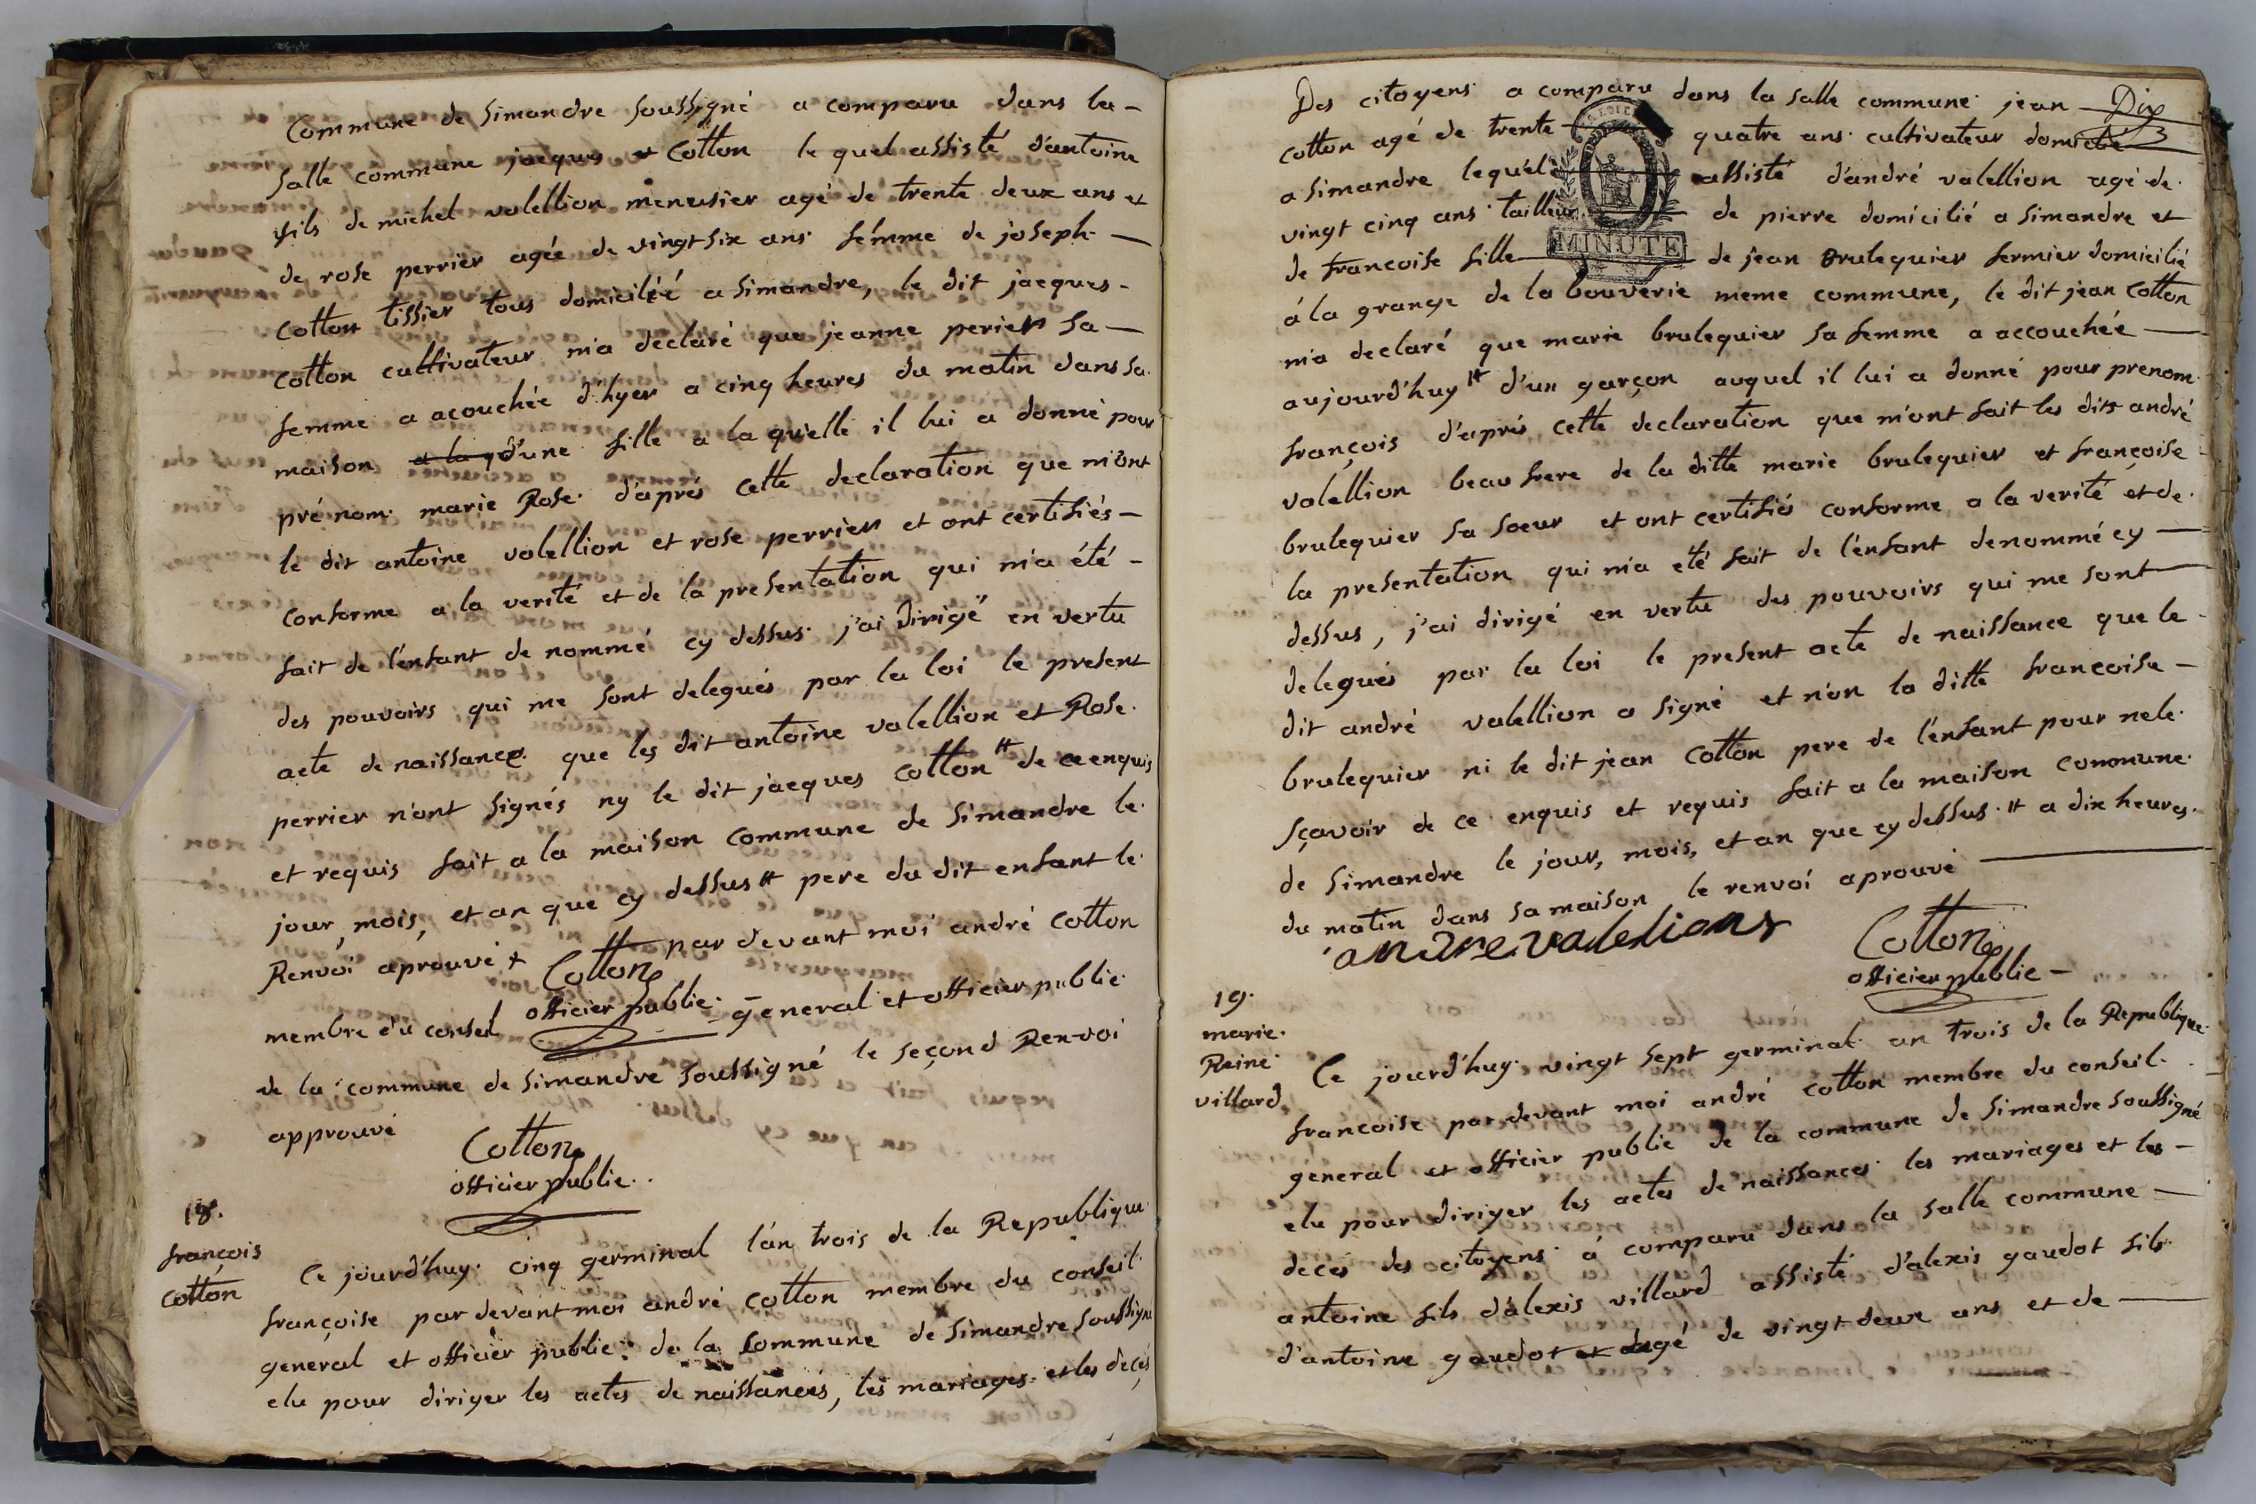 Commune de simandre soussigné a comparu dans la
salle commune jacques Cotton le quel assisté d'antoine
fils de michel valellion menusier agé de trente deux ans et
de rose perrier agée de vingt six ans femme de joseph
Cotton tissier tous domiciléé a simandre, le dit jacques
cotton cultivateur m'a declaré que jeanne perier sa
femme a acouchée d'hyer a cinq heures du matin dans sa
maison et la q d'une fille a la quelle il lui a donné pour
pré nom marie Rose d'aprés cette declaration que m'ont
le dit antoine valellion et rose perrier et ont certifiés
conforme a la verité et de la presentation qui m'a été
fait de l'enfant de nommé cy dessus j'ai dirigé en vertu
des pouvoirs qui me sont delegués par la loi le present
acte de naissance que les dit antoine valellion et Rose
perrier n'ont signés ny le dit jacques cotton # de ce enquis
et requis fait a la maison commune de simandre le
jour, mois, et an que cy dessus # pere du dit enfant le
Renvoi aprouvé + par devant moi andré cotton
Cotton
officier public
membre du conseil general et officier public
de la commune de simandre soussigné le second Renvoi
approuvé
Cotton
officier public
18.
françois
cotton
Ce jourd'huy cinq germinal l'an trois de la Republique
françoise par devant moi andré cotton membre du conseil
general et officier public de la Commune de simandre soussigné
elu pour diriger les actes de naissances, les mariages et les decés
Dix
Des citoyens a comparu dans la salle commune jean
cotton agé de trente quatre ans cultivateur domicilié
a simandre lequel assisté d'andré valellion agé de
vingt cinq ans tailleur de pierre domicilié a simandre et
de francoise fille de jean brulequier fermier domicilié
MINUTE
á la grange de la bouverie meme commune, le dit jean cotton
m'a declaré que marie brulequier sa femme a accouchée
aujourd'huy # d'un garçon auquel il lui a donné pour prenom
françois d'aprés cette declaration que m'ont fait les dits andré
valellion beau frere de la ditte marie brulequier et françoise
brulequier sa soeur et ont certifiés conforme a la verité et de
la presentation qui m'a été fait de l'enfant denommé cy
dessus, j'ai dirigé en vertu des pouvoirs qui me sont
delegués par la loi le present acte de naissance que le
dit andré valellion a signé et n'on la ditte francoise
brulequier ni le dit jean cotton pere de l'enfant pour ne le
sçavoir de ce enquis et requis fait a la maison commune
de simandre le jour, mois, et an que cy dessus # a dix heures
du matin dans sa maison le renvoi aprouvé
andre valellions
Cotton
officier public
19.
marie
Reine
villard
Ce jourd'huy vingt sept germinal an trois de la Republique
francoise par devant moi andré cotton membre du conseil
general et officier public de la commune de simandre soussigné
elu pour diriger les actes de naissances les mariages et les
decés des citoyens á comparu dans la salle commune
antoine fils d'alexis villard assisté d'alexis gaudot fils
d'antoine gaudot et agé de vingt deux ans et de